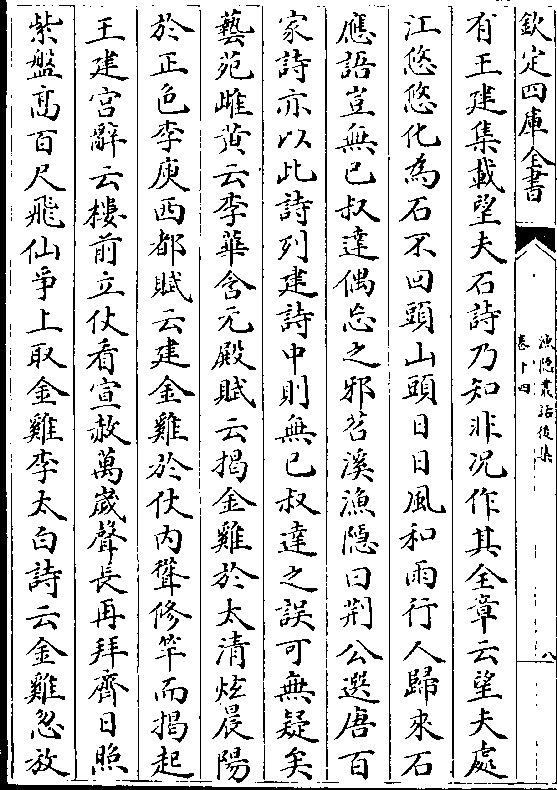 欽定四庫全書
漁隱叢話後集
卷十四
八
有王建集載望夫石詩乃知非况作其全章云望夫處
江悠悠化為石不囘頭山頭日日風和雨行人歸來石
應語豈無已叔達偶忘之邪苕溪漁隱曰荆公選唐百
家詩亦以此詩列建詩中則無已叔達之誤可無疑矣
藝苑雌黄云李華含元殿賦云揭金雞於太清炫晨陽
於正色李庾西都賦云建金雞於仗内聳修竿而揭起
王建宫辭云樓前立仗看宣赦萬歲聲長再拜齊日照
紫盤髙百尺飛仙爭上取金雞李太白詩云金雞忽放